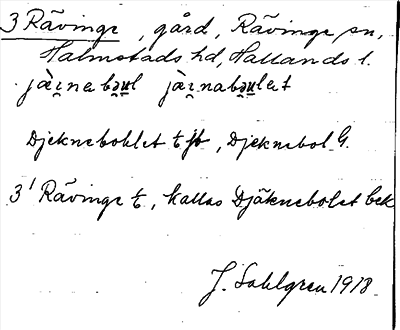 3 Rävinge, gård, Rävinge sn,
Halmstads hd, Hallands l.
jὰɪ̯nabəu̯l jὰɪ̯nabəu̯lət
Djekneboklet t jb, Djeknebol G.
3¹ Rävinge t, kallas Djäknebolet bek
J. Sahlgren 1918